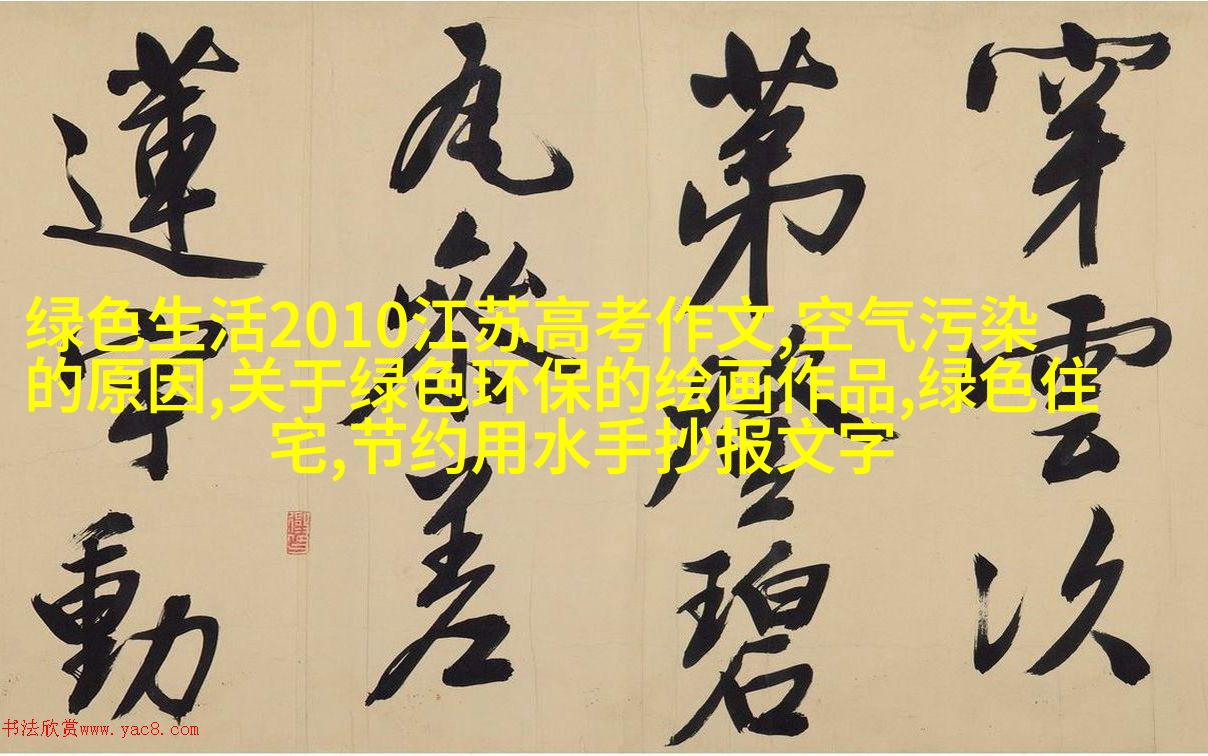 穿雲次
第碧
瓦參差
蓮宇動
绿色生活2010江苏高考作文,空气污染
的原因,关于绿色环保的绘画作品,绿色住
宅,节约用水手抄报文字
书法欣赏www.yac8.com